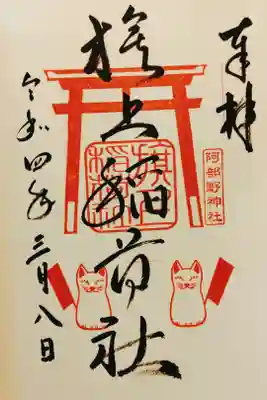 奉拝
阿部野神社
旗上稲荷社
令和四年三月八日